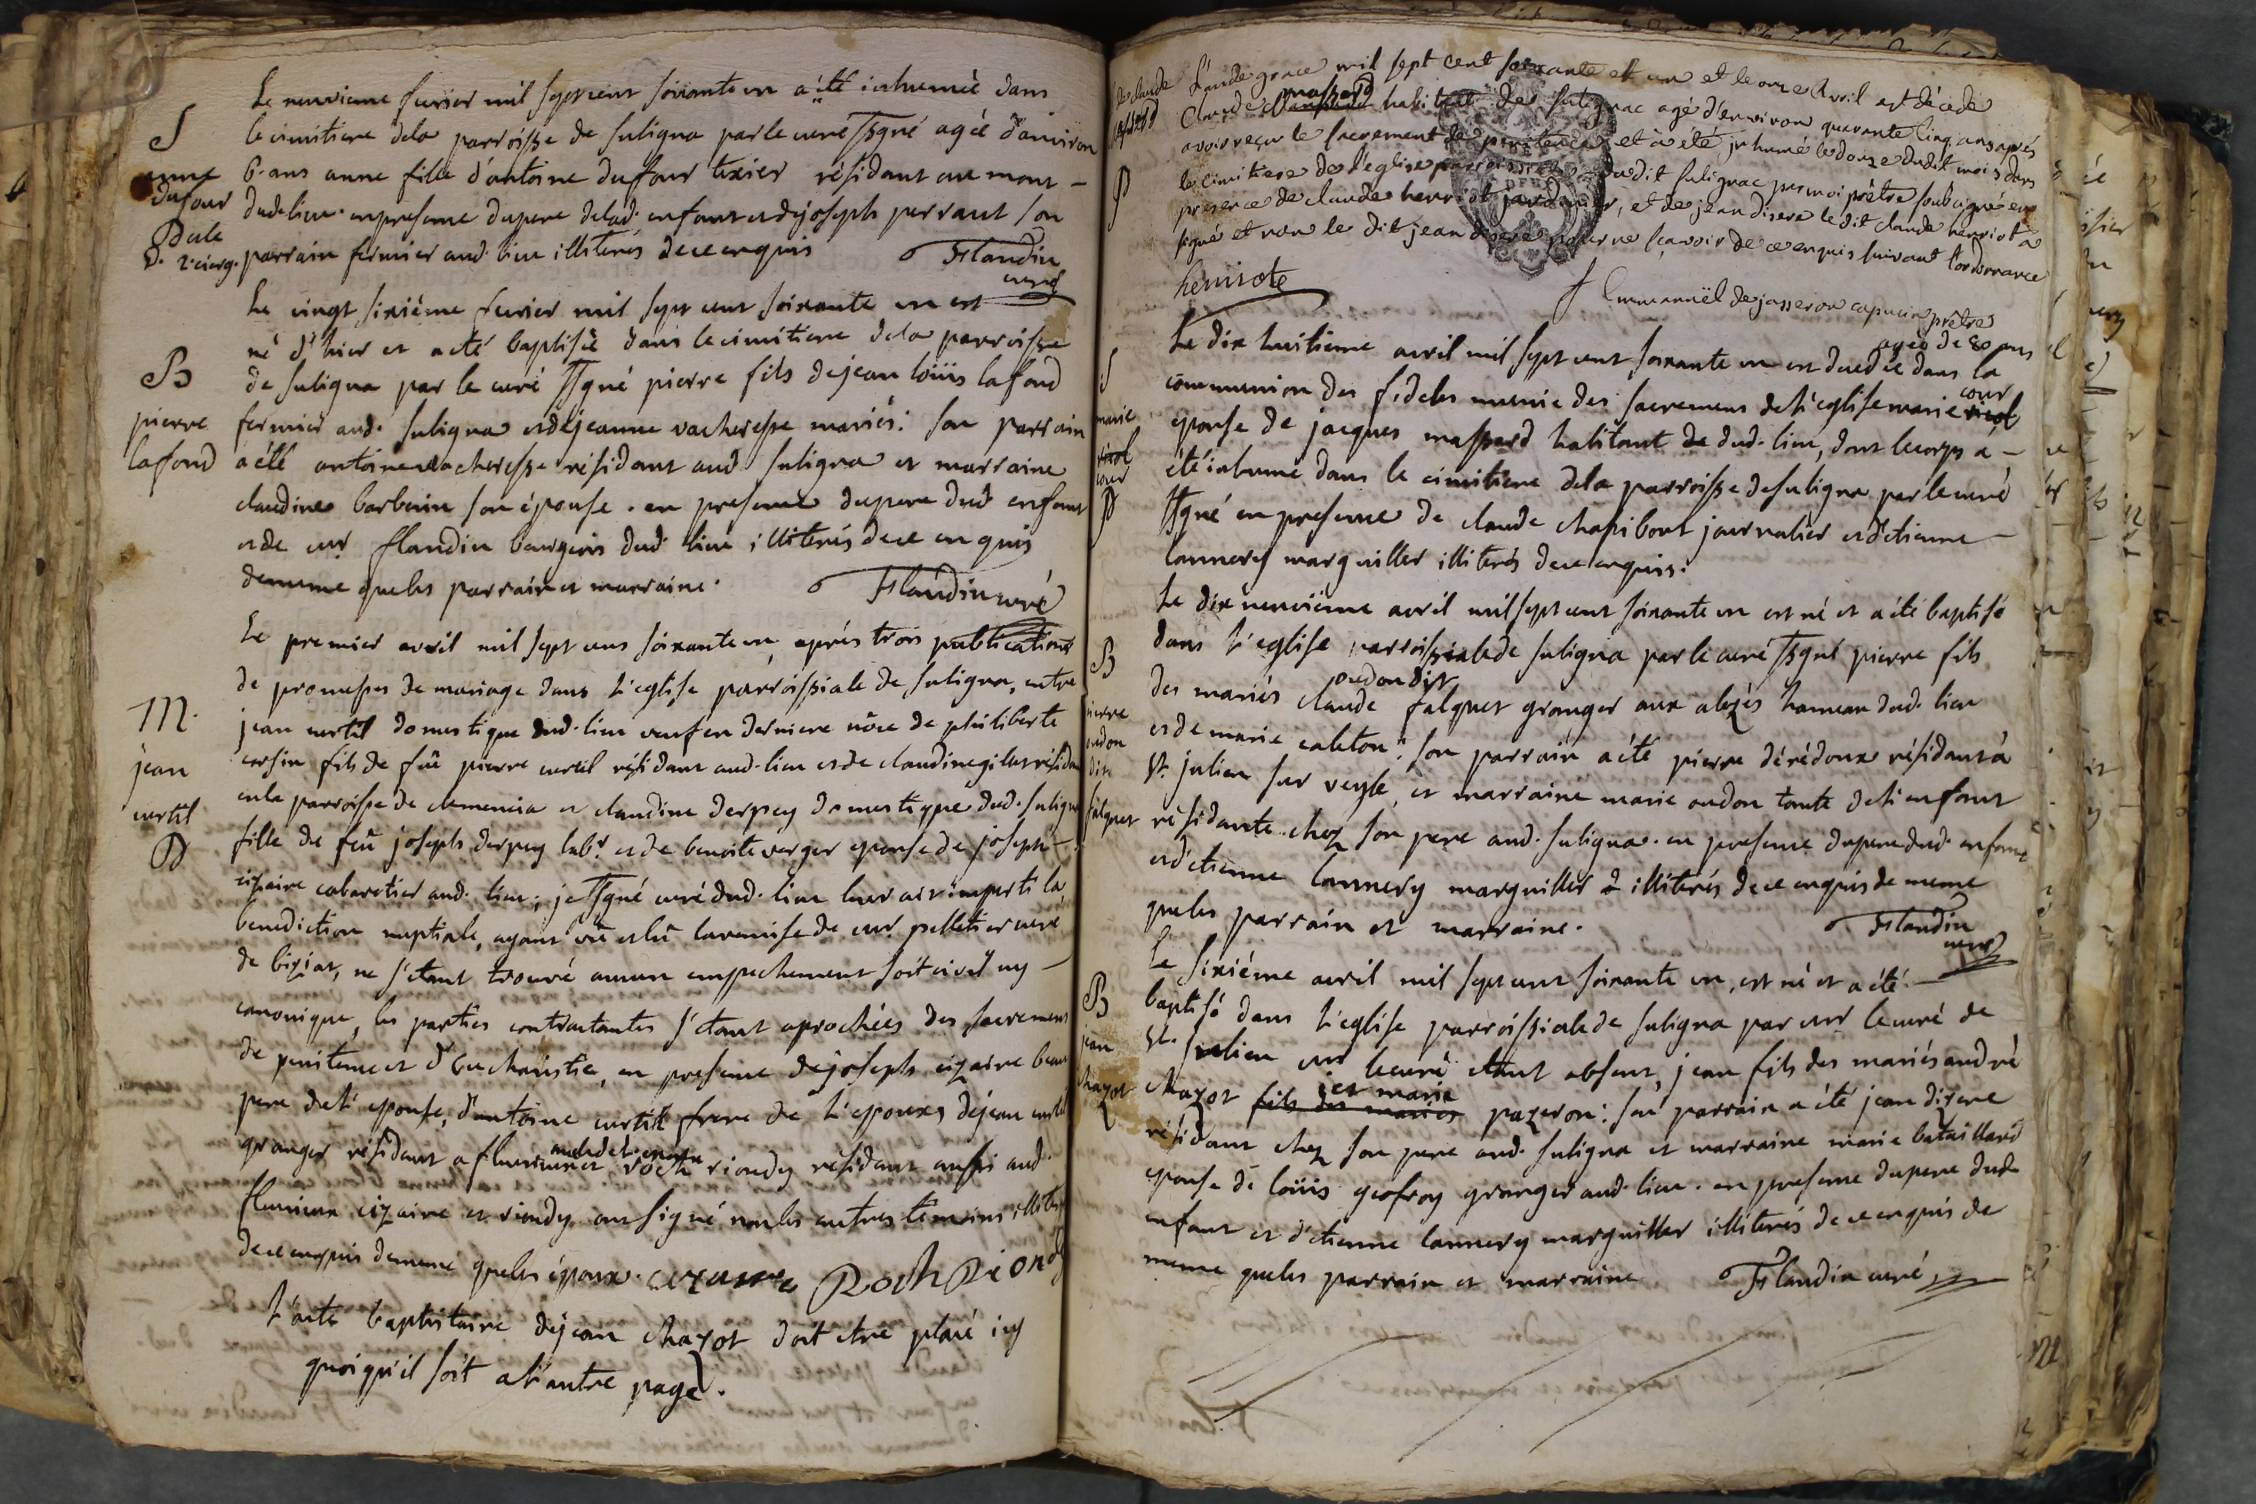 Le neuvieme fevrier mil sept cent soixante un a été inhumée dans
S le cimitiere dela parroisse de suligna par le curé ssigné agée d'anviron
anne 6. ans anne fille d'antoine dufour texier résidant au mont -
dufour dudt lieu. en presence du pere delad. enfant et de joseph perraut son
parrain fermier aud. lieu illiterés de ce enquis Flandin
curé
Le vingt sixiéme fevrier mil sept cent soixante un est
né d'hier et a été baptisé dans le cimitiere dela parroisse
B de suligna par le curé ssigné pierre fils de jean loüis lafond
pierre fermier aud. suligna et de jeanne vacheresse mariés: son parrain
lafond a été antoine vacheresse résidant aud suligna et marraine
claudine barberin son épouse. en presence du pere dud enfant
et de mr flandin bourgeois dud. lieu illiterés de ce enquis
de meme que les parrain et marraine. Flandin curé
Le premier avril mil sept cens soixante un, aprés trois publications
de promesses de mariage dans l'eglise parroissiale de suligna, entre
M. jean curtil domestique dud. lieu veuf en derniere nôce de philiberte
jean corsin fils de fûe pierre curtil résidant aud. lieu et de claudine
curtil en la parroisse de clemencia et claudine derpey domestique dud. suligna
D fille de feû joseph derpey labr. et de benoite verger epouse de joseph -
cizaire cabaretier aud. lieu; je ssigné curé dud. lieu leur ai imparti la
benediction nuptiale, ayant vû et lû la remise de mr. pelletier curé
de biziat, ne s'etant trouvé aucun empechement soit civil ny -
canonique, les parties contractantes s'etant aprochées des sacremens
de penitence et d'Eucharistie, en presence de joseph cizaire beau
pere de l'epouse, d'antoine curtil frere de l'epoux, de jean curtil
granger résidant a fleurieux et roch riondy résidant aussi aud.
fleurieux cizaire et riondy ont signé non les autres temoins illiterés
de ce enquis de meme que les époux. cizaire Roch Riondy
L'acte baptistaire de jean chazot doit etre placé icy
quoiqu'il soit a l'autre page.
L'an de grace mil sept cent soixante et un et le onze Avril est décédé
Claude massard habitant de sulignac agé d'environ quarante cinq ans aprés
avoir reçu le sacrement de penitence et a été inhumé le douze dudit mois dans
le cimitiere de l'eglise parroissiale dudit sulignac par moi prêtre soubsigné en
presence de claude henriot jardinier, et de jean disere le dit claude henriot a
signé et non le dit jean disere pour ne sçavoir de ce enquis suivant l'ordonnance
henriote
f Emmanuël de jasseron capucin prêtre
agée de 80 ans
Le dix huitieme avril mil sept cent soixante un est decedée dans la
communion des fideles munie des sacremens de l'eglise marie cour
epouse de jacques massard habitant de dud. lieu, dont le corps a -
été inhumé dans le cimitiere dela parroisse de suligna par le curé
ssigné en presence de claude chapibout journalier et d'etienne -
lannery marguiller illiterés de ce enquis.
Le dix neuviéme avril mil sept cent soixante un est né et a été baptisé
B dans l'eglise parroissiale de suligna par le curé ssigné pierre fils
oudon dit
pierre des mariés claude falquet granger aux hameau dud. lieu
oudon et de marie caleton: son parrain a été pierre dérédoux résidant à
dit St. julien sur veyle, et marraine marie oudon tante de l'enfant
falquet résidante chez son pere aud. suligna. en presence du pere dud. enfant
et d'etienne lannery marguiller illiterés de ce enquis de meme
que les parrain et marraine. Flandin
curé
Le sixiéme avril mil sept cent soixante un, est né et a été -
B baptisé dans l'eglise parroissiale de suligna par mr le curé de
jean St. julien mr le curé etant absent, jean fils des mariés andré
chazot chazot fils des mariés et marie pazeron: son parrain a été jean dizere
résidant chez son pere aud. suligna et marraine marie bataillard
epouse de loüis geofroy granger aud. lieu. en presence du pere dud.
enfant et d'etienne lannery marguiller illiterés de ce enquis de
meme que les parrain et marraine Flandin curé